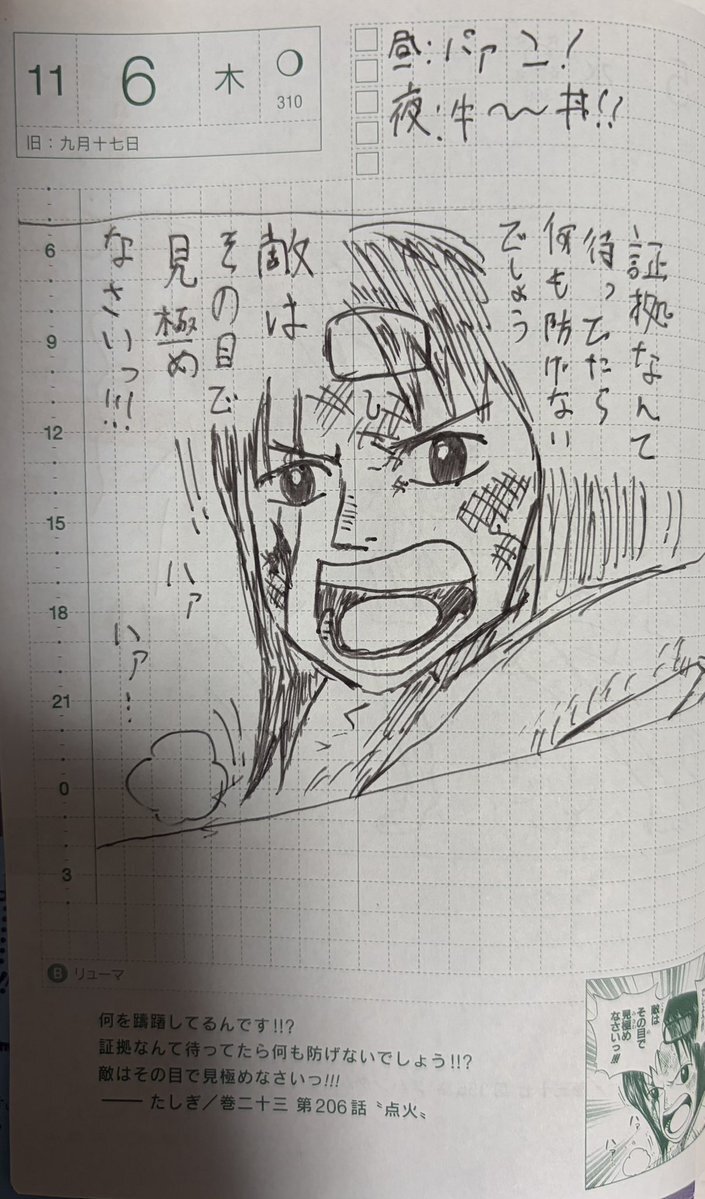 11 6 木
310
旧：九月十七日
昼：パァン！
夜：牛〜丼!!
証拠なんて
待ってたら
何も防げない
でしょう
敵は
その目で
見極め
なさいっ!!!
ハァ
ハァ…
6
9
12
15
18
21
0
3
B リューマ
何を躊躇してるんです!!?
証拠なんて待ってたら何も防げないでしょう!!?
敵はその目で見極めなさいっ!!!
—— たしぎ／巻二十三 第206話〝点火〟
敵は
その目で
見極め
なさいっ!!!
ハァ
ハァ…